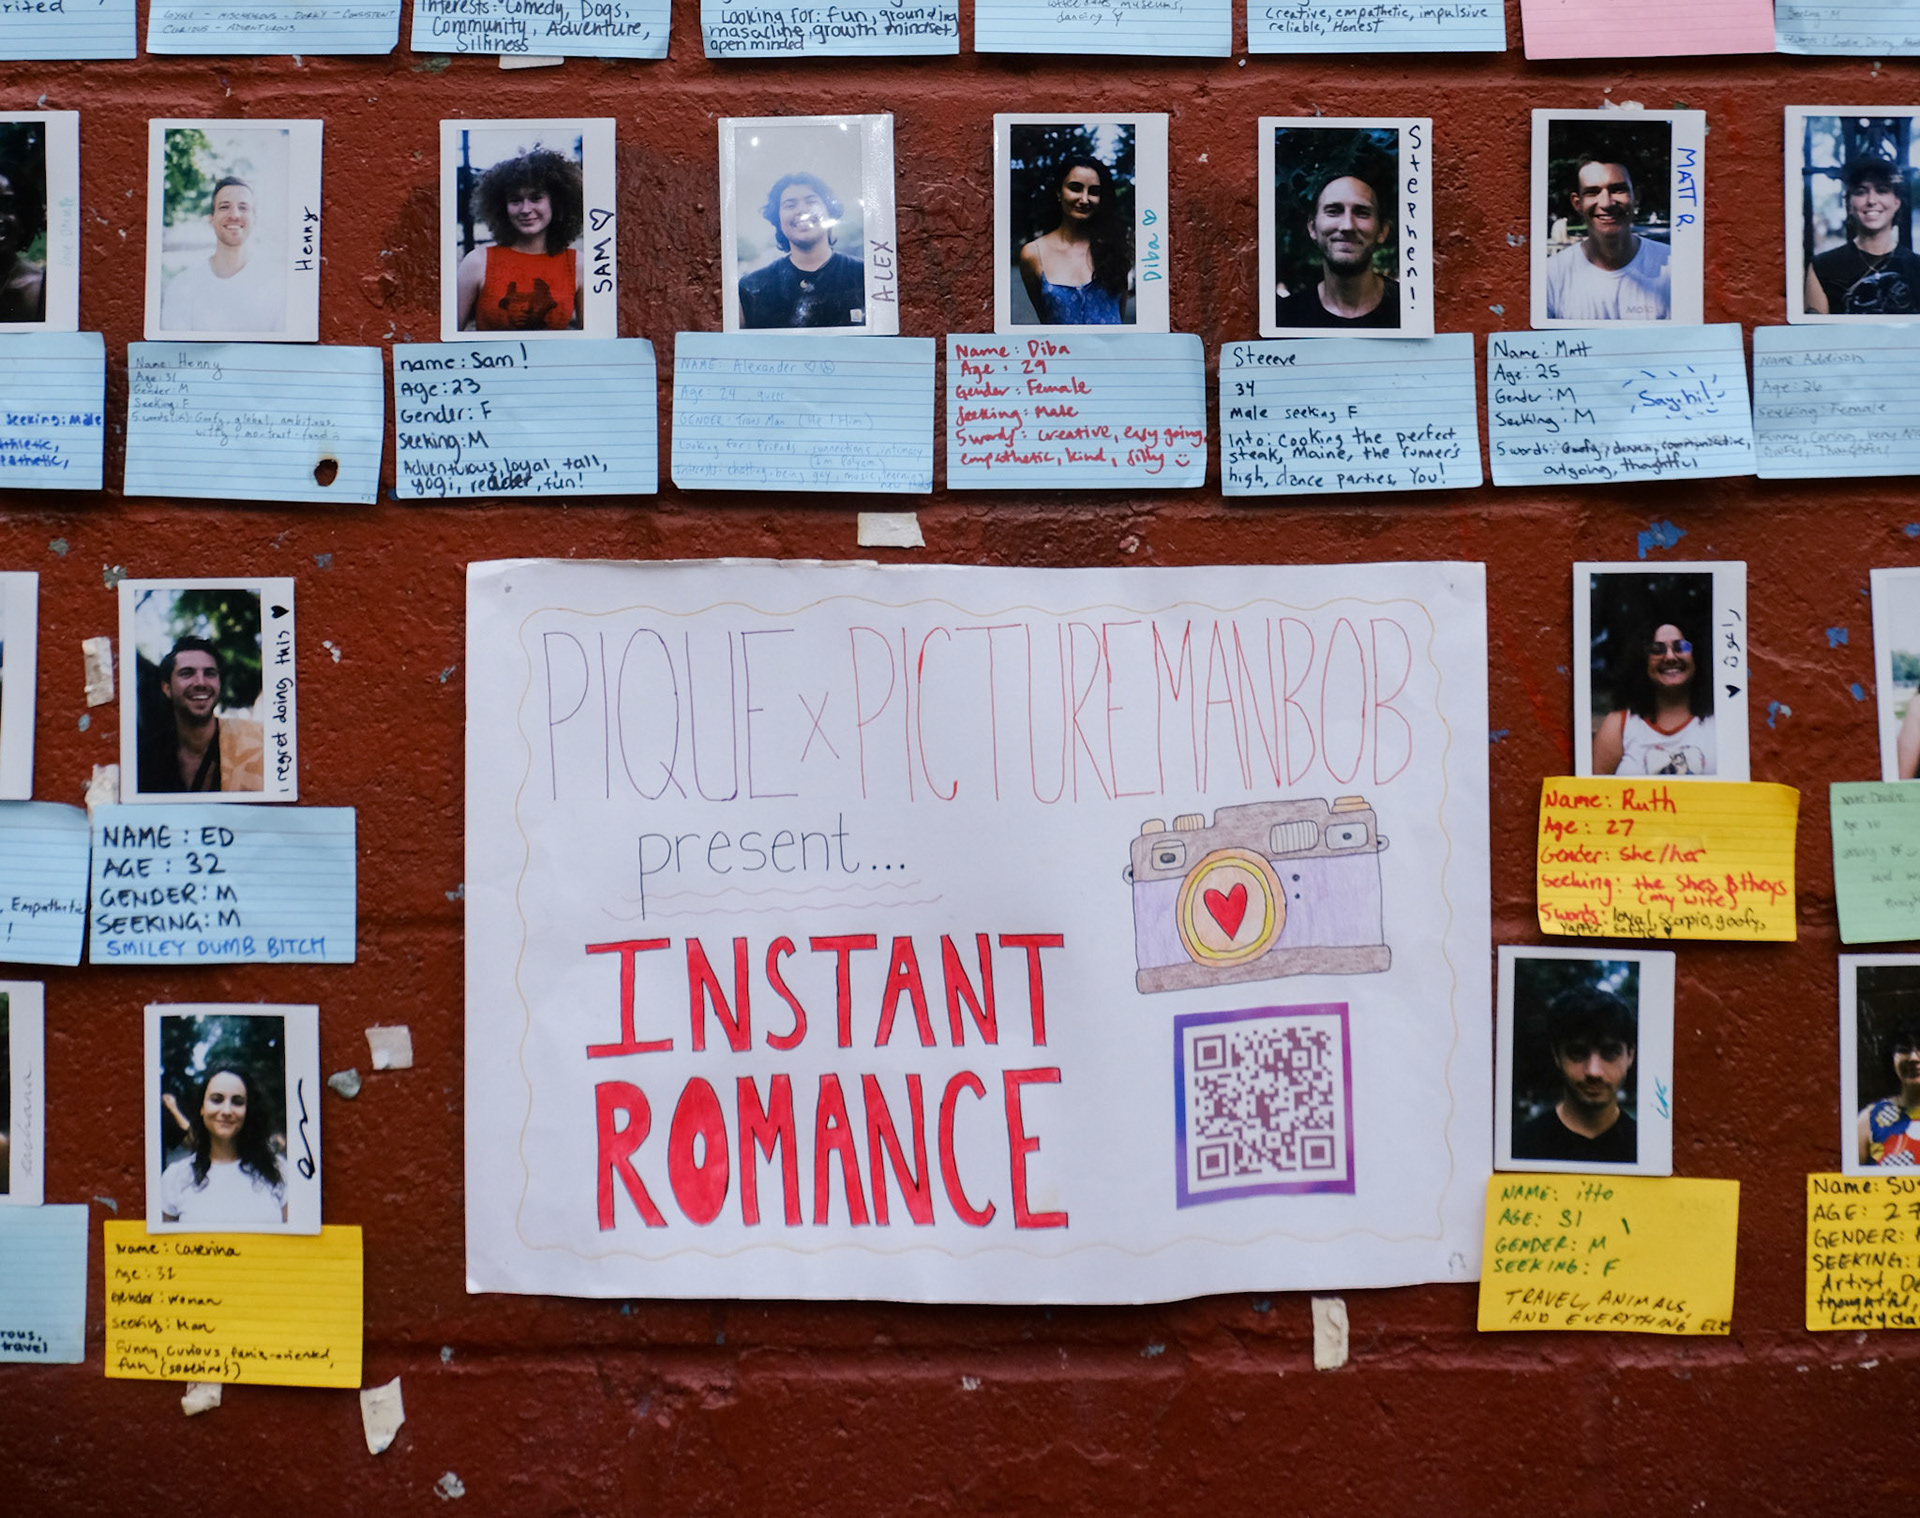 rited
CURIOUS - ADVENTUROUS
Interests: Comedy, Dogs,
Community, Adventure,
Silliness
Looking for: fun, grounding
masculine, growth mindset,
open minded
dancing
creative, empathetic, impulsive
reliable, Honest
Henny
SAM
ALEX
Diba
Stephen!
MATT R.
Seeking: Male
Name: Henny
Age: 31
Gender: M
Seeking: F
5 words(ish): Goofy, global, ambitious,
witty,
name: Sam!
Age: 23
Gender: F
Seeking: M
Adventurous, loyal, tall,
yogi, reader, fun!
NAME: Alexander
Age: 24, queer
GENDER: Trans Man (He/Him)
Looking for: Friends, connections, intimacy
(I'm Polyam)
Interests: chatting, being gay, music, learning
Name: Diba
Age: 29
Gender: Female
Seeking: Male
5 words: creative, easy going,
empathetic, kind, silly
Steeeve
34
Male seeking F
Into: Cooking the perfect
steak, Maine, the runner's
high, dance parties, You!
Name: Matt
Age: 25
Gender: M
Seeking: M
Say hi!
5 words: Goofy, driven, communicative,
outgoing, thoughtful
Name: Addison
Age: 26
Seeking: Female
Funny, Caring,
Goofy, Thoughtful
I regret doing this
, Empathetic
!
NAME: ED
AGE: 32
GENDER: M
SEEKING: M
SMILEY DUMB BITCH
PIQUE x PICTUREMANBOB
present...
INSTANT
ROMANCE
Name: Ruth
Age: 27
Gender: she/her
Seeking: the shes & theys
(my wife)
5 words: loyal, scorpio, goofy,
yapper, softie
rous,
travel
Name: Caterina
Age: 31
Gender: Woman
Seeking: Man
Funny, curious, panic-oriented,
fun (sometimes)
NAME: itto
AGE: 31
GENDER: M
SEEKING: F
TRAVEL, ANIMALS,
AND EVERYTHING ELSE
Name: SUS
AGE: 27
GENDER:
SEEKING:
Artist, De
thoughtful,
Lindy da